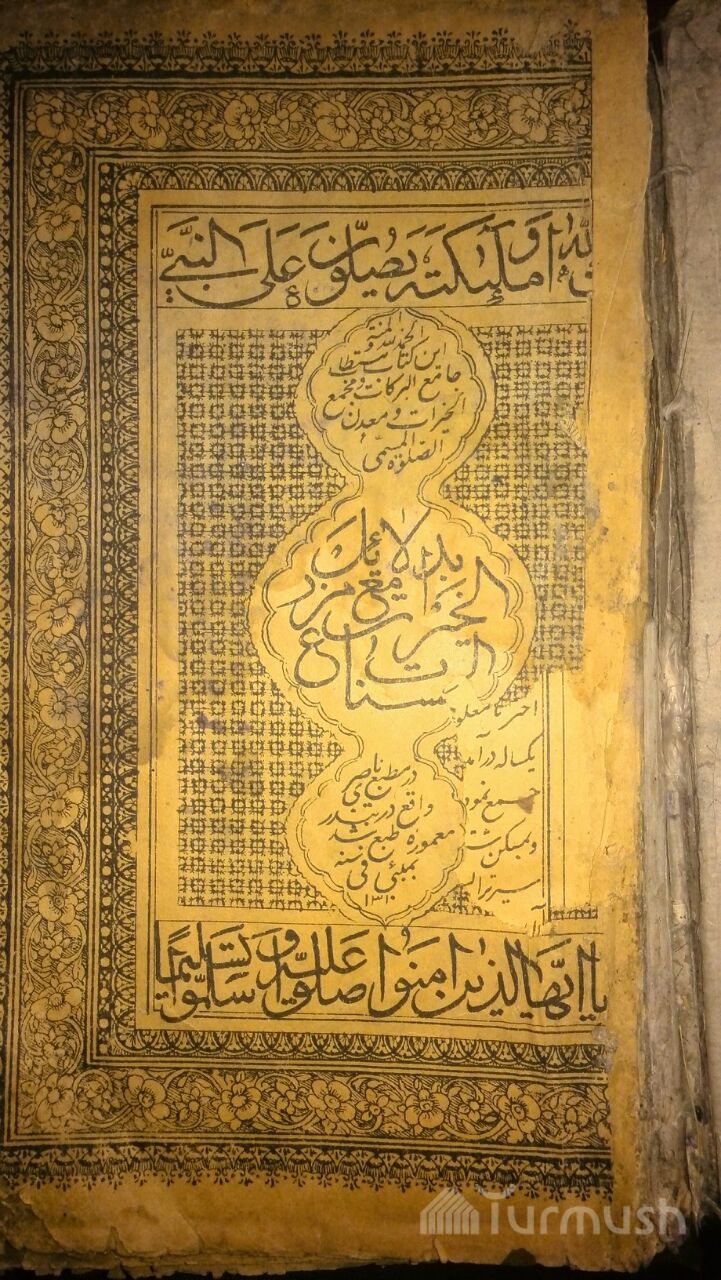 لله و ملئكته يصلون على النبي
الحمد لله و المنة
این کتاب مستطاب
جامع البرکات و مجمع
الخیرات و معدن
الصلوة المسمی
بدلائل
الخیرات مع مزرع
الحسنات
یکساله درآمد
جمع نمود
در مطبع ناصری
واقع در بندر
معموره طبع شد
بمبئی فی سنه
۱۳۱۰
يا ايها الذين امنوا صلوا عليه و سلموا تسليما
Turmush